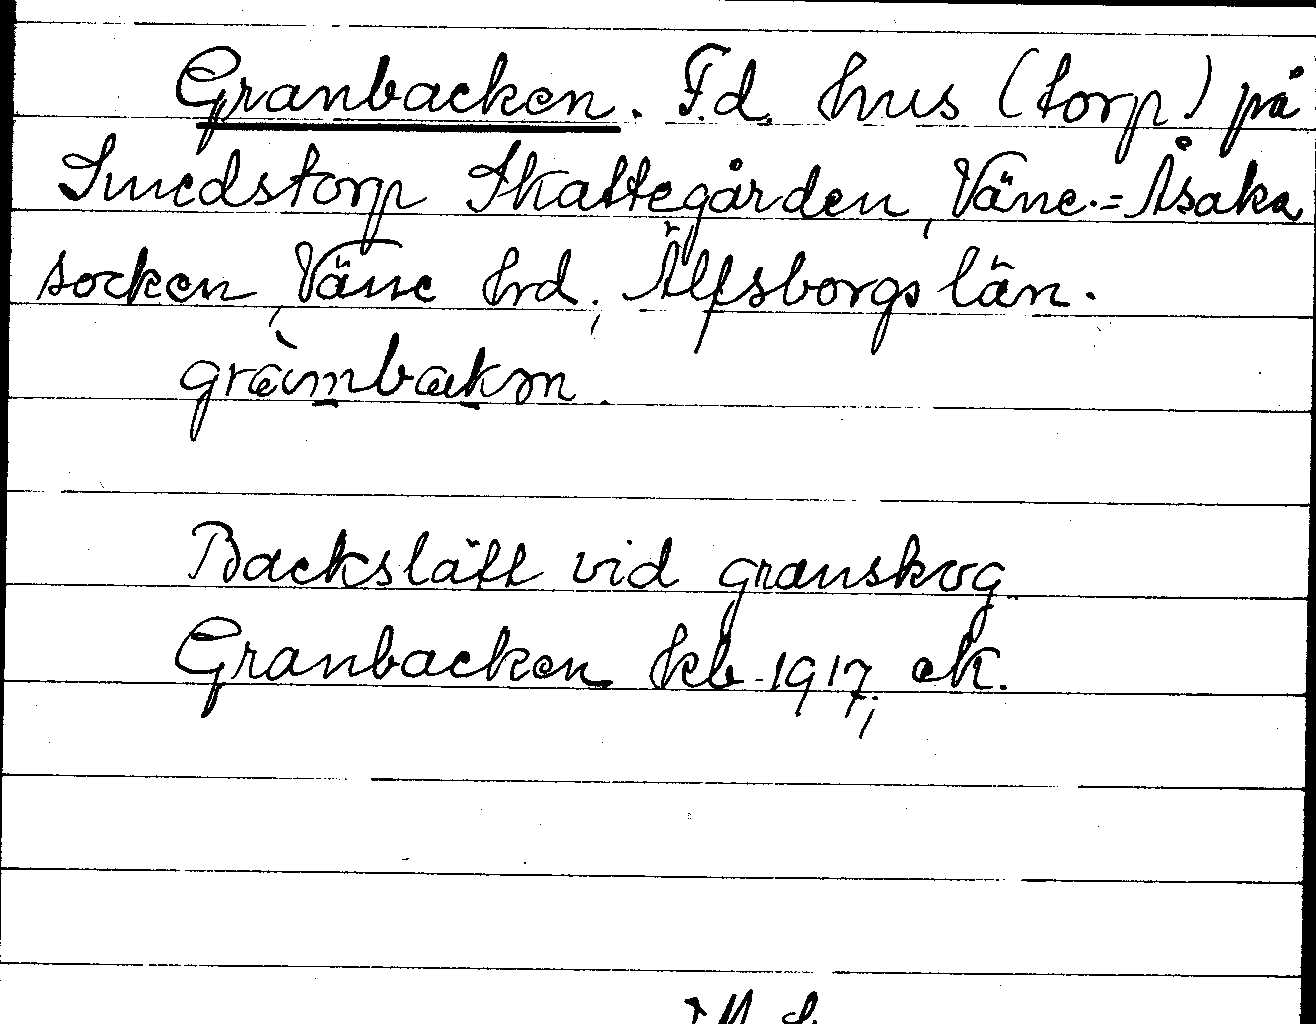 Granbacken. F.d. hus (torp) på
Smedstorp Skattegården, Väne-Åsaka
socken, Väne hrd, Älfsborgs län.
gràmbakɷn.
Backslätt vid granskog
Granbacken kb 1917, ek.